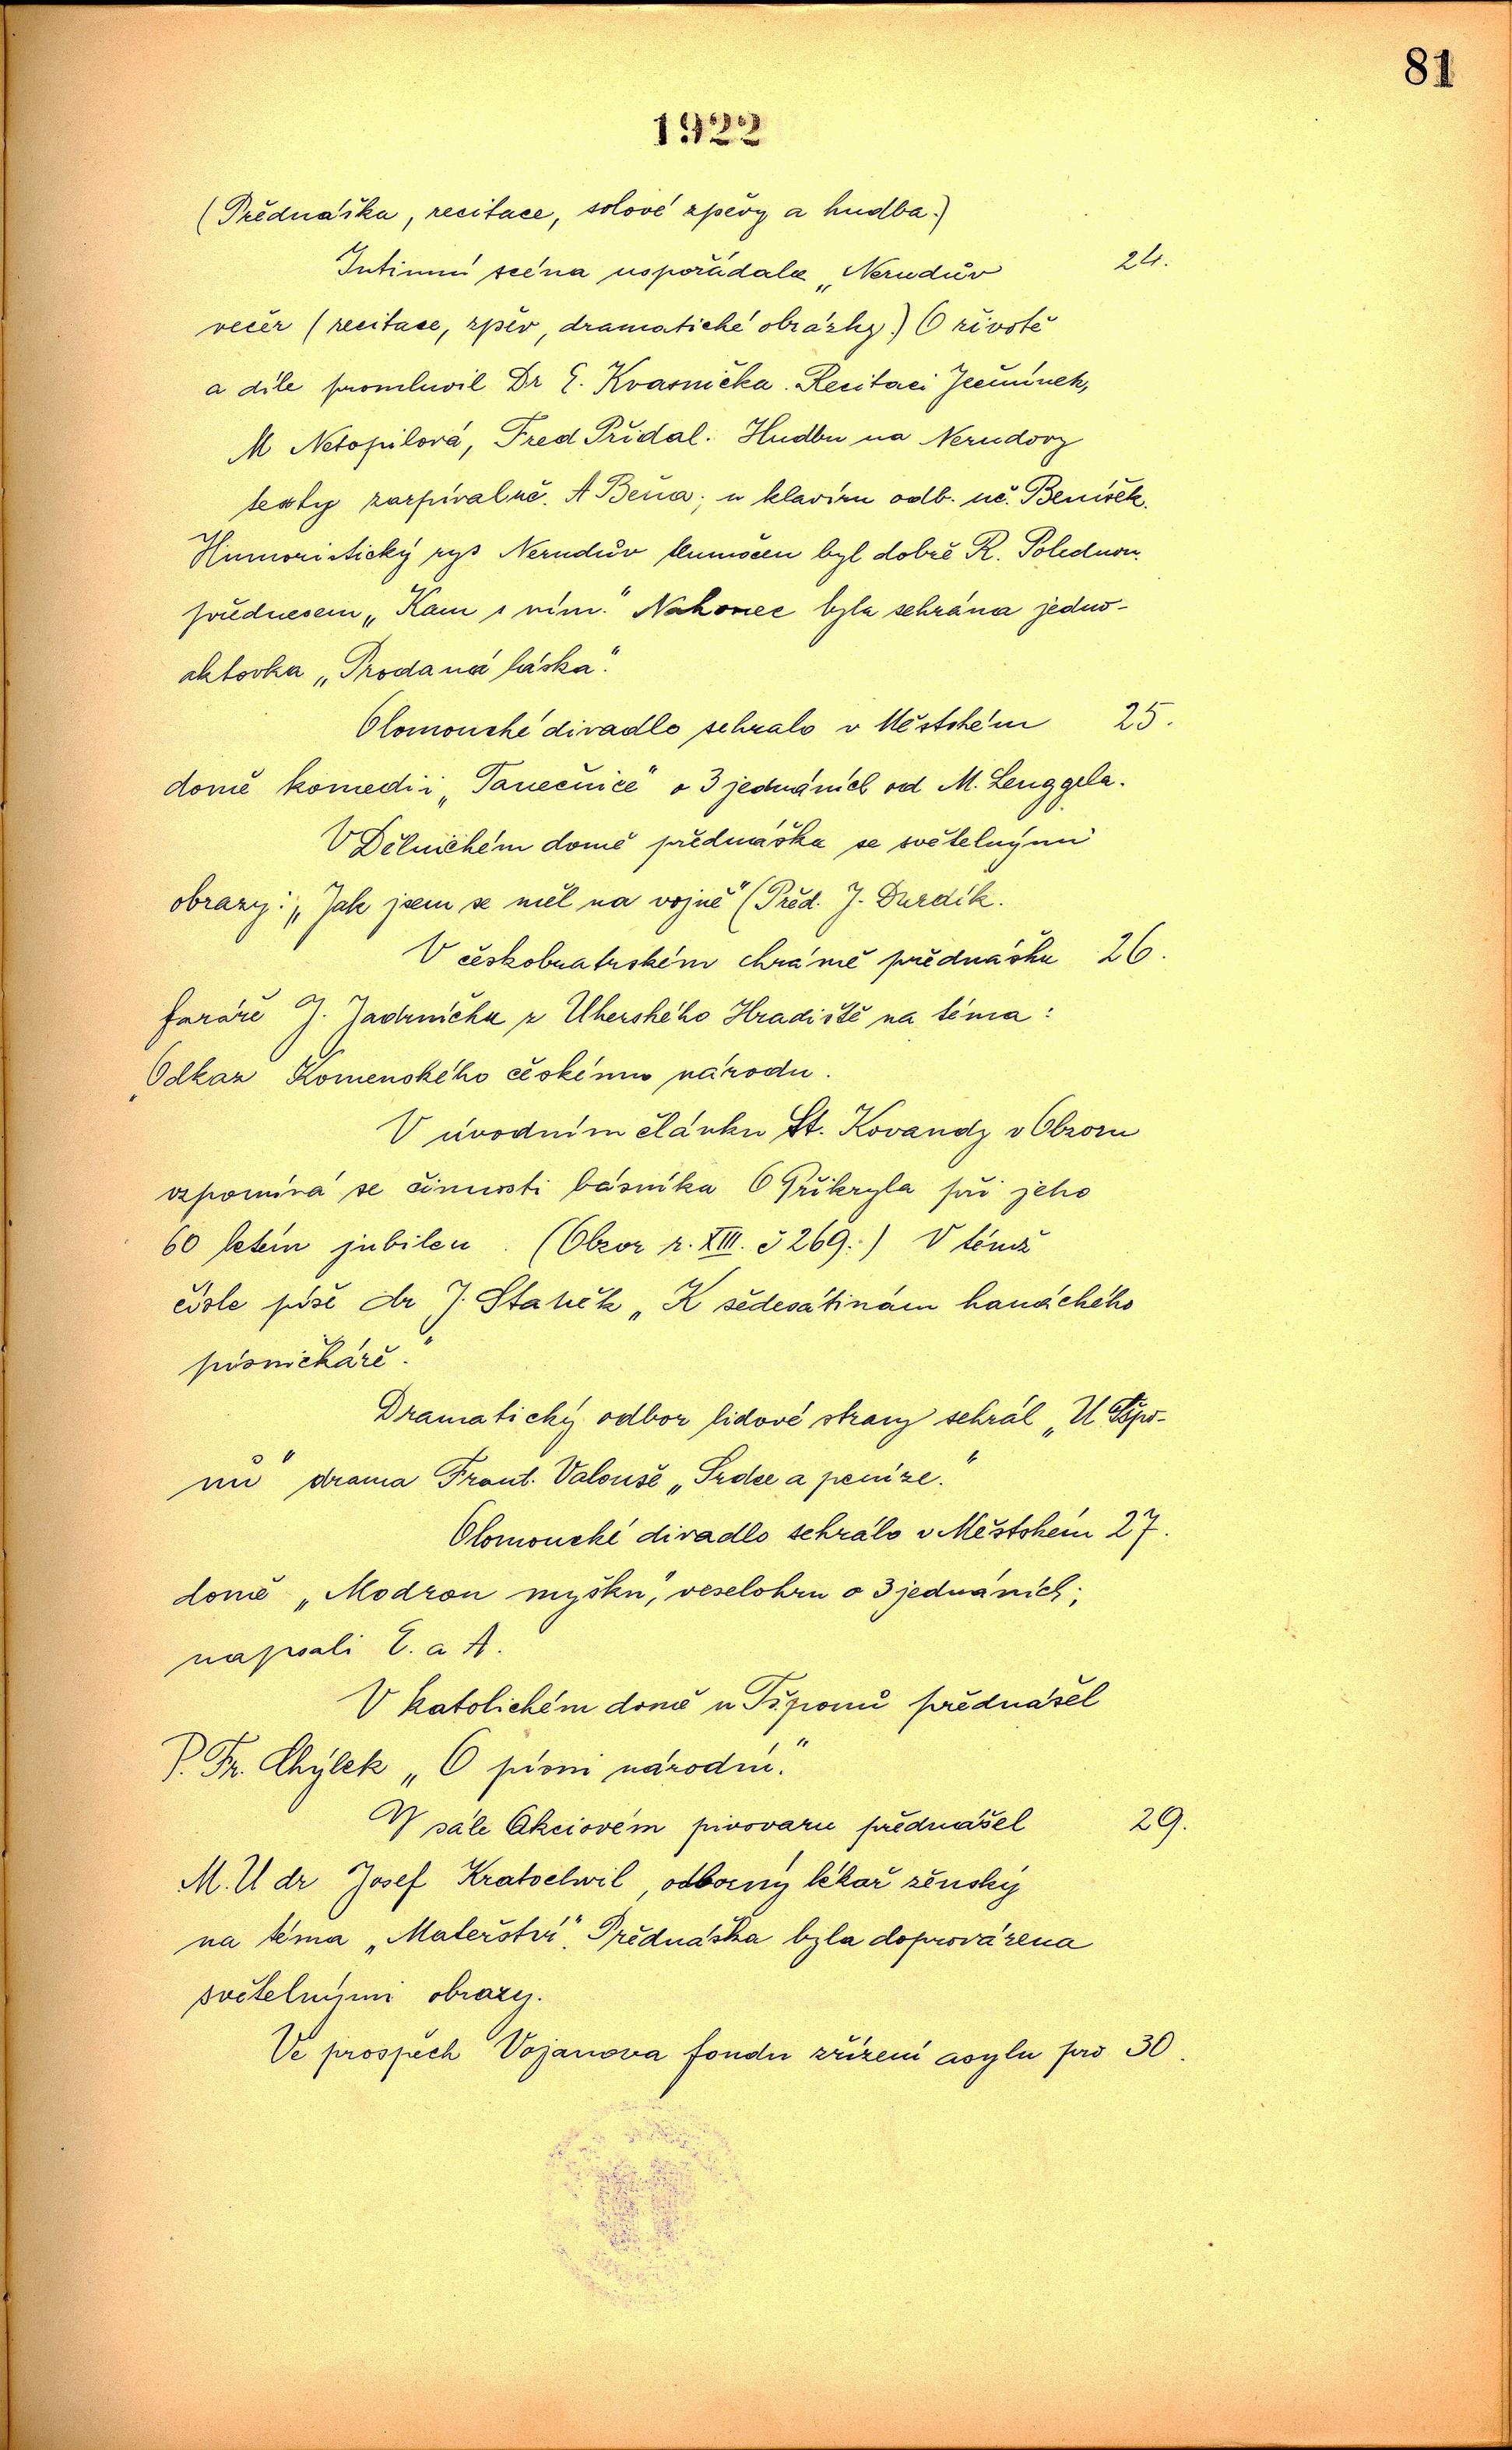 81
1922
(Přednáška, recitace, solové zpěvy a hudba.)
Intimní scéna uspořádala „Nerudův 24.
večer (recitace, zpěv, dramatické obrázky.) O životě
a díle promluvil Dr E. Kvasnička. Recitaci Ječmínek,
M Netopilová, Fred Přidal. Hudbu na Nerudovy
texty zazpíval uč. A Beňa; u klavíru odb. uč. Beníšek.
Humoristický rys Nerudův tlumočen byl dobře R. Polednou.
přednesem „Kam s ním." Nakonec byla sehrána jedno-
aktovka „Prodaná láska".
Olomoucké divadlo sehralo v Městském 25.
domě komedii „Tanečnice" o 3 jednáních od M. Lenggela.
V Dělnickém domě přednáška se světelnými
obrazy: „Jak jsem se měl na vojně" (Před. J. Durdík.
V českobratrském chrámě přednášku 26.
faráře J. Jadrníčka z Uherského Hradiště na téma:
„Odkaz Komenského českému národu.
V úvodním článku St. Kovandy v Obzoru
vzpomíná se činnosti básníka O Přikryla při jeho
60 letém jubileu. (Obzor r. XIII. č 269.) V témž
čísle píše dr J. Staněk „K šedesátinám hanáckého
písničkáře."
Dramatický odbor lidové strany sehrál „U Tšpo-
nů" drama Frant. Valouše „Srdce a peníze."
Olomoucké divadlo sehrálo v Městském 27.
domě „Modrou myšku", veselohru o 3 jednáních;
napsali E. a A.
V katolickém domě u Tšponů přednášel
P. Fr. Chýlek „O písni národní."
V sále Akciovém pivovaru přednášel 29.
M. U dr Josef Kratochvil, odborný lékař ženský
na téma „Mateřství". Přednáška byla doprovázena
světelnými obrazy.
Ve prospěch Vojanova fondu zřízení asylu pro 30.